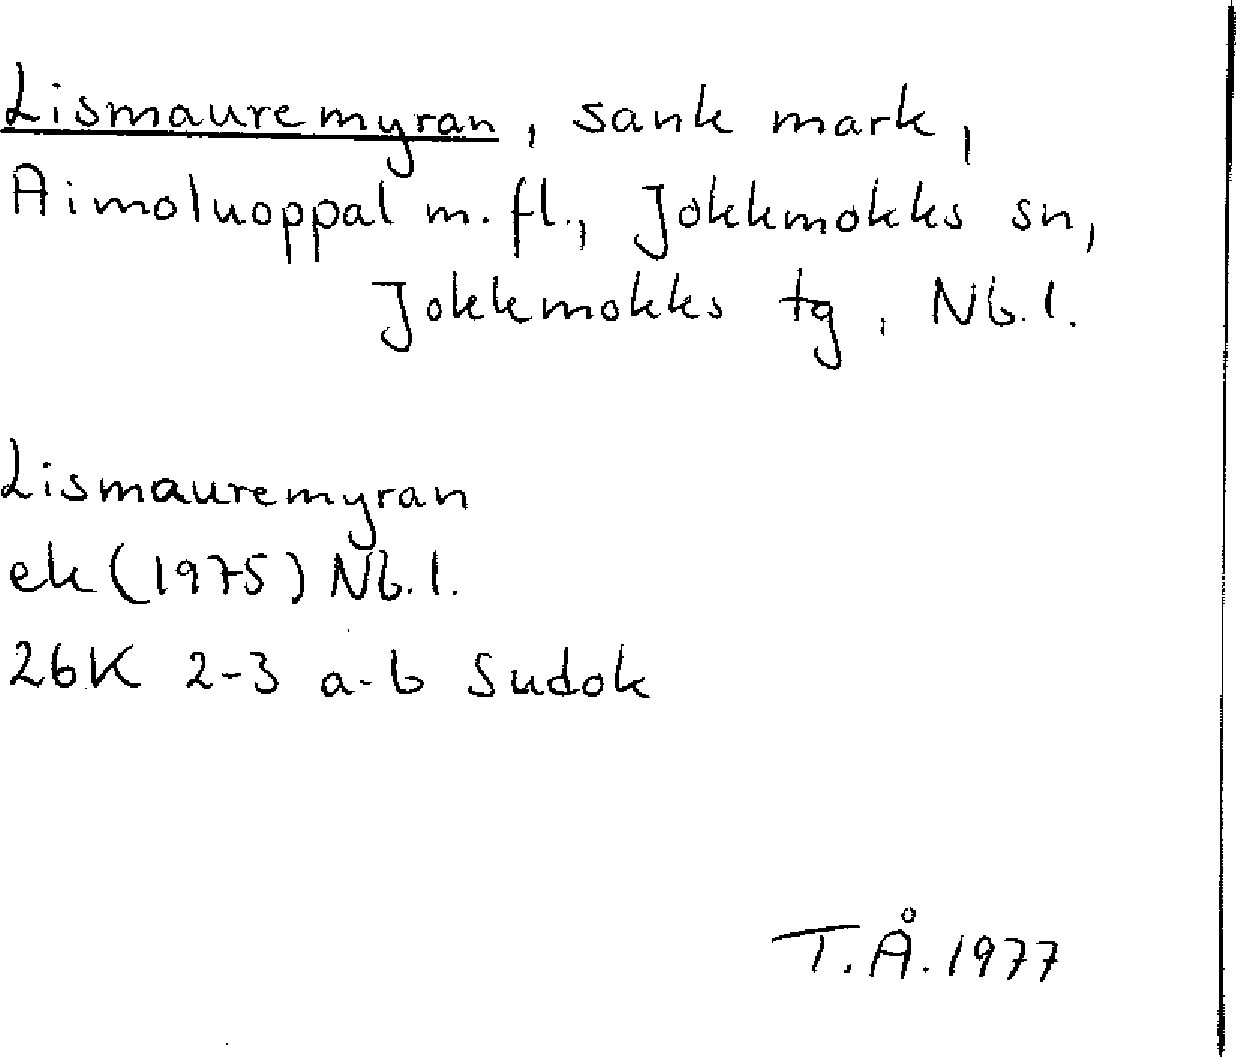 Lismauremyran, sank mark,
Aimoluoppal m.fl., Jokkmokks sn,
Jokkmokks tg, Nb.l.
Lismauremyran
ek (1975) Nb.l.
26K 2-3 a-b Sudok
T.Å. 1977